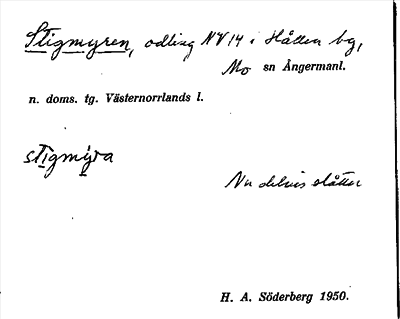 Stigmyren, odling NV14 i Håtten bg,
Mo sn Ångermanl.
n. doms. tg. Västernorrlands l.
stigmýra
Nu delvis slåtter
H. A. Söderberg 1950.